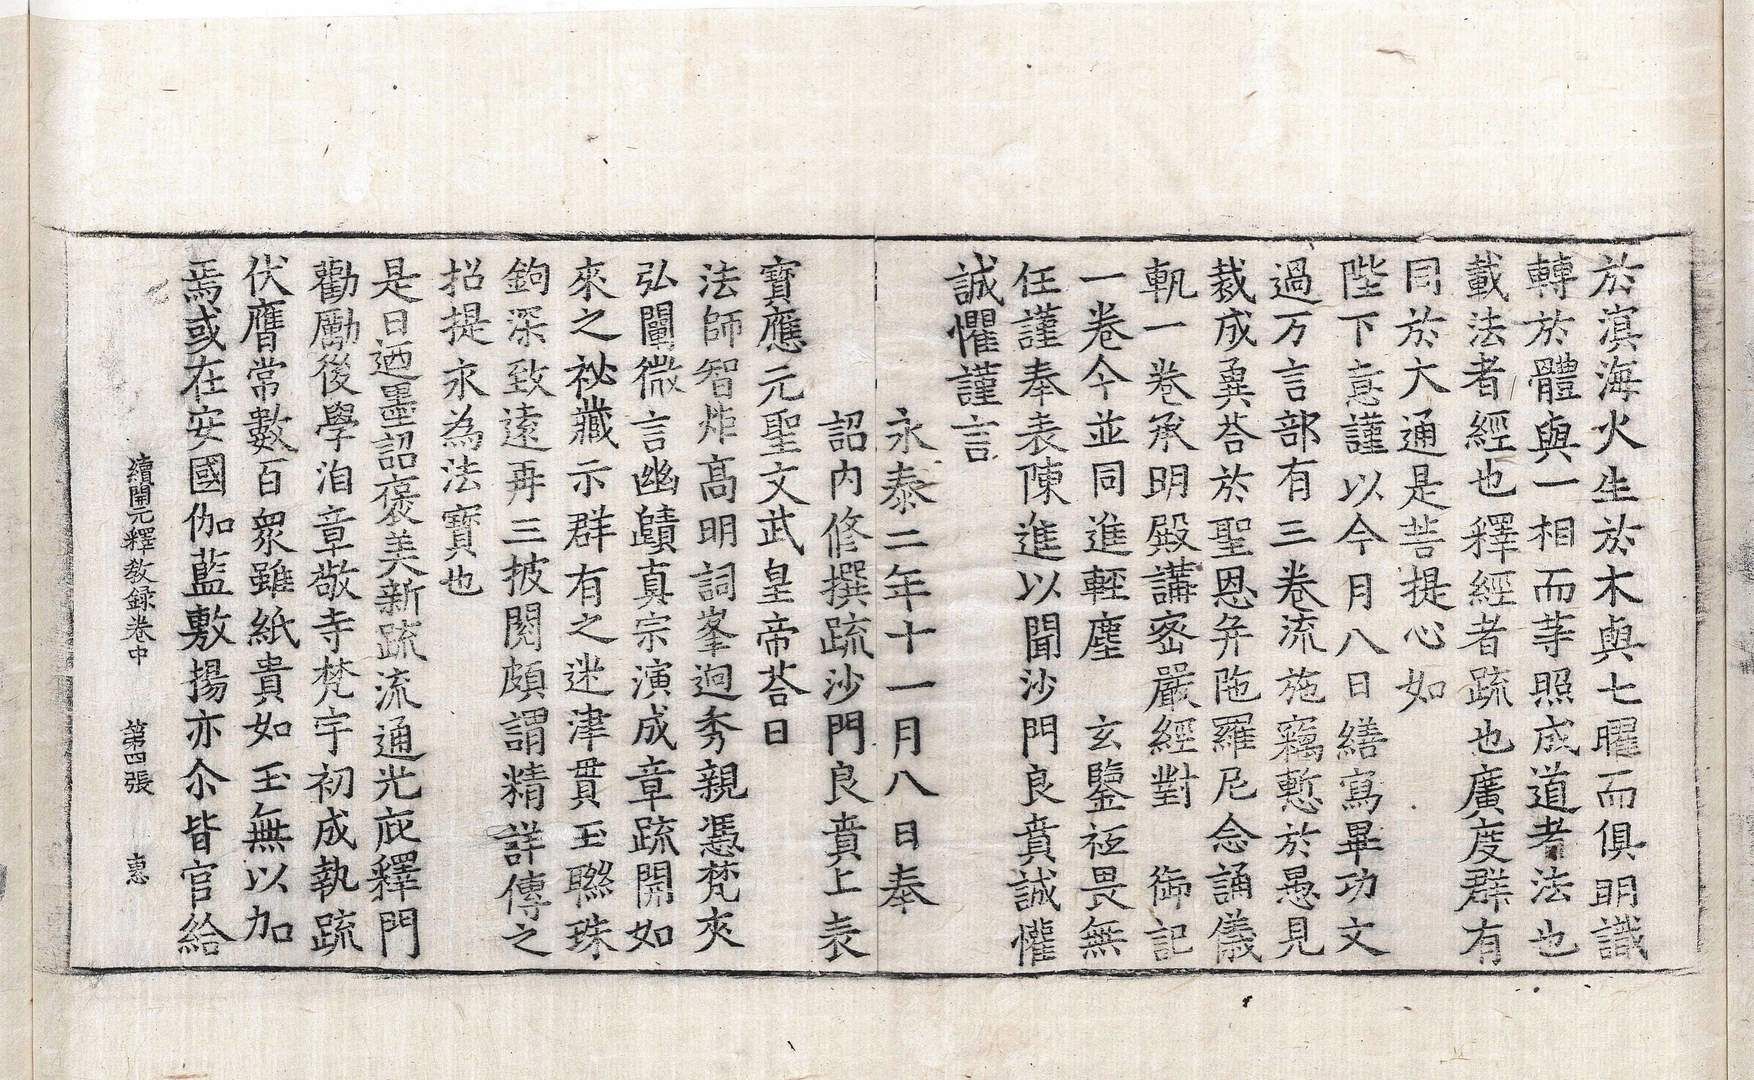 於溟海火生於木與七曜而俱明識
轉於體與一相而等照成道者法也
載法者經也釋經者疏也廣度群有
同於大通是菩提心如
陛下意謹以今月八日繕寫畢功文
過万言部有三卷流施竊慙於愚見
裁成異荅於聖恩并陁羅尼念誦儀
軌一卷承明殿講密嚴經對　御記
一卷今並同進輕塵　玄鑒祗畏無
任謹奉表陳進以聞沙門良賁誠懽
誠懼謹言
永泰二年十一月八日奉
詔內修撰疏沙門良賁上表
寶應元聖文武皇帝荅曰
法師智炬高明詞峯逈秀親憑梵夾
弘闡微言幽賾真宗演成章疏開如
來之祕藏示群有之迷津貫玉聯珠
鉤深致遠再三披閱頗謂精詳傳之
招提永為法寶也
是日迺墨詔褒美新疏流通光庇釋門
勸勵後學洎章敬寺梵宇初成執疏
伏膺常數百眾雖紙貴如玉無以加
焉或在安國伽藍敷揚亦尒皆官給
續開元釋教錄卷中　第四張　惠